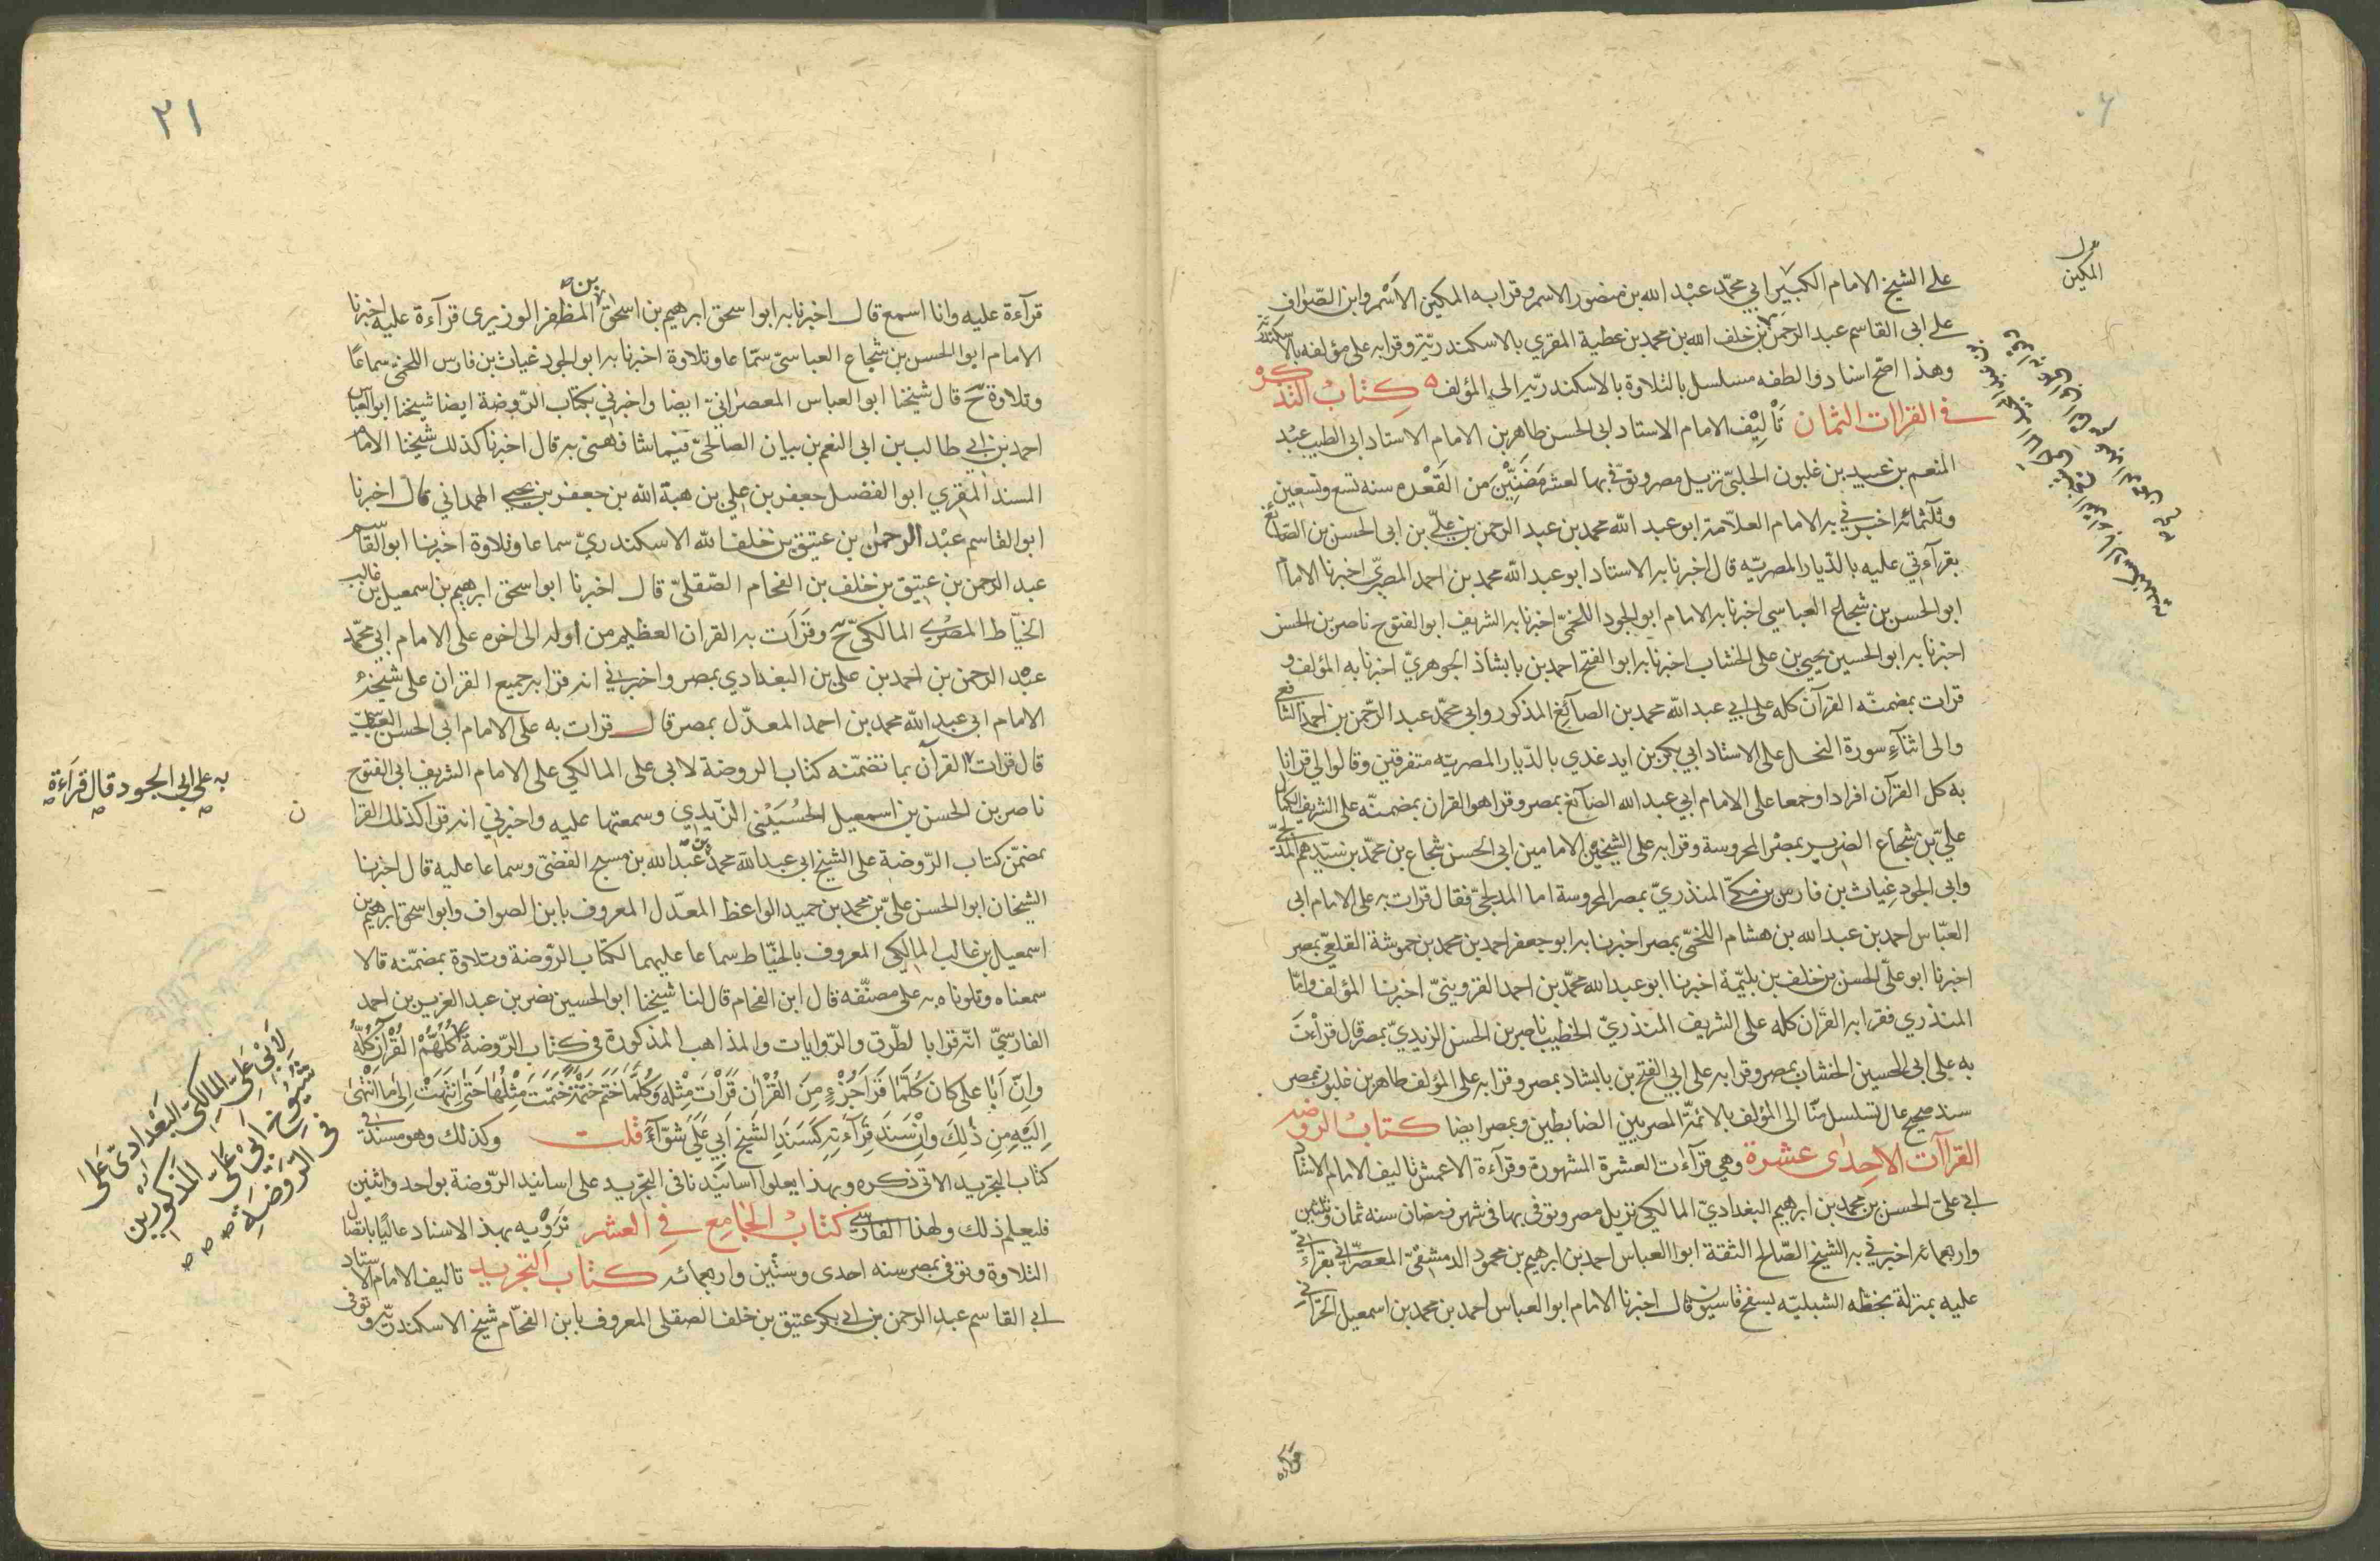 على الشيخ الامام الكبير ابي محمد عبد الله بن منصور الاسمر وقرا به المكين الاسمر وابن الصواف
على ابي القاسم عبد الرحمن بن خلف الله بن محمد بن عطية المقري بالاسكندرية وقرا به على مؤلفه بالاسكندرية
وهذا اصح اسناد والطفه مسلسل بالتلاوة بالاسكندرية الى المؤلف ه كتاب التذكرة
في القراات الثمان تأليف الامام الاستاد ابي الحسن طاهر بن الامام الاستاد ابي الطيب عبد
المنعم بن عبيد بن غلبون الحلبي نزيل مصر وتوفي بها لعشر مضين من القعده سنه تسع وتسعين
وثلثمائه اخبرني به الامام العلامة ابو عبد الله محمد بن عبد الرحمن بن علي بن ابي الحسن بن الصائغ
بقرآءتي عليه بالديار المصريه قال اخبرنا به الاستاد ابو عبد الله محمد بن احمد المصري اخبرنا الامام
ابو الحسن بن شجاع العباسي اخبرنا به الامام ابو الجود اللخمي اخبرنا به الشريف ابو الفتوح ناصر بن الحسن
اخبرنا به ابو الحسين يحيى بن على الخشاب اخبرنا به ابو الفتح احمد بن بابشاذ الجوهري اخبرنا به المؤلف و
قرات بمضمنه القرآن كله على ابي عبد الله محمد بن الصآئغ المذكور وابي محمد عبد الرحمن بن احمد الشافعي
والى اثنآء سورة النحل على الاستاد ابي بكر بن ايدغدي بالديار المصريه متفرقين وقالوا لي قرانا
به كل القرآن افرادا وجمعا على الامام ابي عبد الله الصآئغ بمصر وقرا هو القران بمضمنه على الشريف الكمال
علي بن شجاع الضرير بمصر المحروسة وقرا به على الشيخين الامامين ابي الحسن شجاع بن محمد بن سيدهم المدلجي
وابي الجود غياث بن فارس بن مكي المنذري بمصر المحروسة اما المدلجي فقال قرات به على الامام ابي
العباس احمد بن عبد الله بن هشام اللخمي بمصر اخبرنا به ابو جعفر احمد بن محمد بن حموشة القلعي بمصر
اخبرنا ابو علي الحسن بن خلف بن بليمة اخبرنا ابو عبد الله محمد بن احمد القزويني اخبرنا المؤلف واما
المنذري فقرا به القران كله على الشريف المنذري الخطيب ناصر بن الحسن الزيدي بمصر قال قرأت
به على ابي الحسين الخشاب بمصر وقرا به على ابي الفتح بن بابشاذ بمصر وقرا به على المؤلف طاهر بن غلبون بمصر
سند صحيح عال تسلسل منا الى المؤلف بالائمة المصريين الضابطين وبمصر ايضا كتاب الروضه
القراآت الاحدى عشرة وهي قرآءات العشرة المشهورة وقرآءة الاعمش تاليف الامام الاستاد
ابي على الحسن بن محمد بن ابرهيم البغدادي المالكي نزيل مصر وتوفي بها في شهر رمضان سنه ثمان وثلثين
واربعمائه اخبرني به الشيخ الصالح الثقة ابو العباس احمد بن ابرهيم بن محمود الدمشقي المعصراني بقراءتي
عليه بمنزلة بخطه الشبليه بسفح قاسيون قال اخبرنا الامام ابو العباس احمد بن محمد بن اسمعيل الحراني
المكين
قراءه
٢١
قرآءة عليه وانا اسمع قال اخبرنا به ابو اسحق ابرهيم بن اسحق بن المظفر الوزيرى قرآءة عليه اخبرنا
الامام ابو الحسن بن شجاع العباسي سماعا وتلاوة اخبرنا به ابو الجود غياث بن فارس اللخمي سماعا
وتلاوة ح قال شيخنا ابو العباس المعصراني ايضا واخبرني بكتاب الروضة ايضا شيخنا ابو العباس
احمد بن ابي طالب بن ابي النعم بن بيان الصالحي فيما شافهني به قال اخبرنا كذلك شيخنا الامام
المسند المقري ابو الفضل جعفر بن علي بن هبة الله بن جعفر بن يحيى الهمداني قال اخبرنا
ابو القاسم عبد الرحمن بن عتيق بن خلف الله الاسكندري سماعا وتلاوة اخبرنا ابو القاسم
عبد الرحمن بن عتيق بن خلف بن الفحام الصقلي قال اخبرنا ابو اسحق ابرهيم بن اسمعيل بن غالب
الخياط المصري المالكي ح وقرات به القران العظيم من اوله الى اخره على الامام ابي محمد
عبد الرحمن بن احمد بن علي بن البغدادي بمصر واخبرني انه قرا به جميع القران على شيخه
الامام ابي عبد الله محمد بن احمد المعدل بمصر قال قرات به على الامام ابي الحسن العباسي
قال قرات القرآن بما تضمنه كتاب الروضة لابي على المالكي على الامام الشريف ابي الفتوح
ناصر بن الحسن بن اسمعيل الحسيني الزيدي وسمعتها عليه واخبرني انه قرا كذلك القرا ن
بمضمن كتاب الروضة على الشيخ ابي عبد الله محمد بن عبد الله بن مسبح الفضي وسماعا عليه قال اخبرنا
الشيخان ابو الحسن علي بن محمد بن حميد الواعظ المعدل المعروف بابن الصواف وابو اسحق ابرهيم بن
اسمعيل بن غالب المالكي المعروف بالخياط سماعا عليهما لكتاب الروضة وتلاوة بمضمنه قالا
سمعناه وتلوناه به على مصنفه قال ابن الفحام قال لنا شيخنا ابو الحسين نصر بن عبد العزيز بن احمد
الفارسي انه قرا بالطرق والروايات والمذاهب المذكورة في كتاب الروضة كلهم القرآن كله
وان ابا علي كان كلما قرا جزء من القران قرأت مثله وكلما ختم ختمة ختمت مثلها حتى انتهت الى ما انتهى
اليه من ذلك وان سند قرآءته كسند الشيخ ابي علي سوآء قلت وكذلك وهو مسند في
كتاب التجريد الاتي ذكره وبهذا يعلوا اسانيدنا في التجريد على اسانيد الروضة بواحد واثنين
فليعلم ذلك ولهذا الفارسي كتاب الجامع في العشر نرويه بهذ الاسناد عاليا باتصال
التلاوة وتوفي بمصر سنه احدى وستين واربعمائه كتاب التجريد تاليف الامام الاستاد
ابي القاسم عبد الرحمن بن ابي بكر عتيق بن خلف الصقلي المعروف بابن الفحام شيخ الاسكندرية وتوفى
به على ابي الجود قال قراءة
لابي على المالكي البغدادي على
شيوخ ابي علي المذكورين
في الروضه